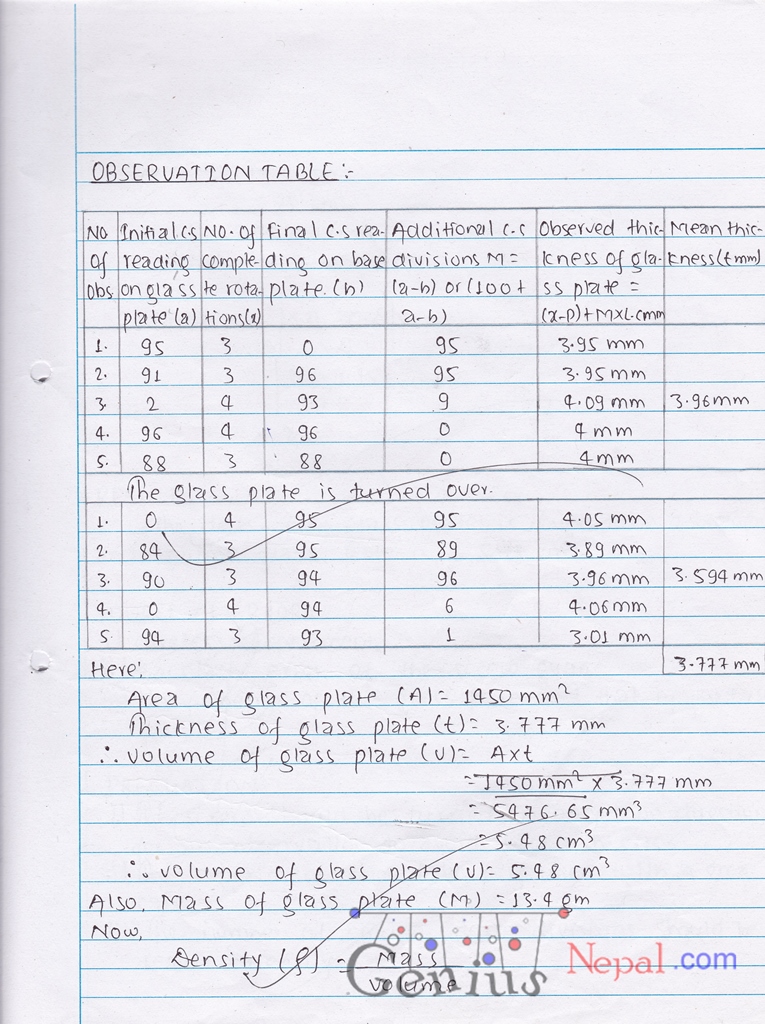 OBSERVATION TABLE:-
No of obs | Initial C.S reading on glass plate (a) | No. of complete rotations(x) | Final C.S reading on base plate. (b) | Additional c.c divisions M = (a-b) or (100+a-b) | Observed thickness of glass plate = (x-p)+MxL.Cmm | Mean thickness(t mm)
1. 95 3 0 95 3.95 mm
2. 91 3 96 95 3.95 mm
3. 2 4 93 9 4.09 mm 3.96mm
4. 96 4 96 0 4 mm
5. 88 3 88 0 4 mm
The glass plate is turned over.
1. 0 4 95 95 4.05 mm
2. 84 3 95 89 3.89 mm
3. 90 3 94 96 3.96 mm 3.594 mm
4. 0 4 94 6 4.06 mm
5. 94 3 93 1 3.01 mm
3.777 mm
Here,
Area of glass plate (A)= 1450 mm²
Thickness of glass plate (t)= 3.777 mm
∴ Volume of glass plate (V)= Axt
= 1450 mm² x 3.777 mm
= 5476.65 mm³
= 5.48 cm³
∴ Volume of glass plate (V)= 5.48 cm³
Also, Mass of glass plate (M) = 13.4 gm
Now,
Density (ρ) = Mass
Volume
Genius Nepal.com